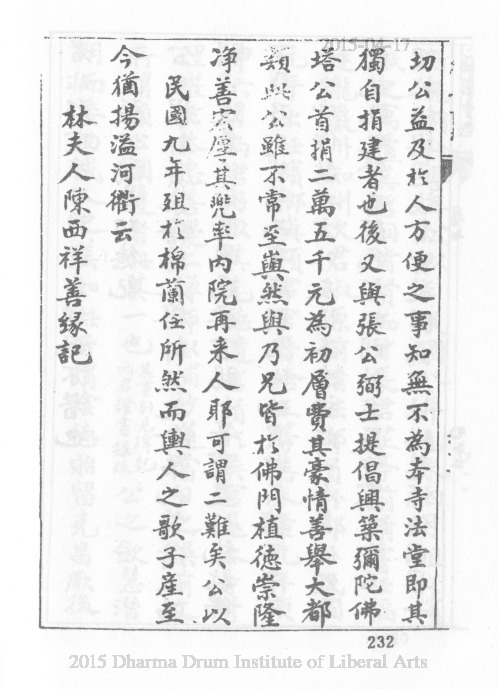 2015-04-17
切公益及於人方便之事知無不為本寺法堂即其
獨自捐建者也後又與張公弼士提倡興築彌陀佛
塔公首捐二萬五千元為初層費其豪情善舉大都
類此公雖不常至茲然與乃兄皆於佛門植德崇隆
净善宏廛其兜率內院再来人耶可謂二難矣公以
民國九年殂於棉蘭住所然而輿人之歌子產至
今猶揚溢河衢云
林夫人陳西祥善緣記
232
2015 Dharma Drum Institute of Liberal Arts